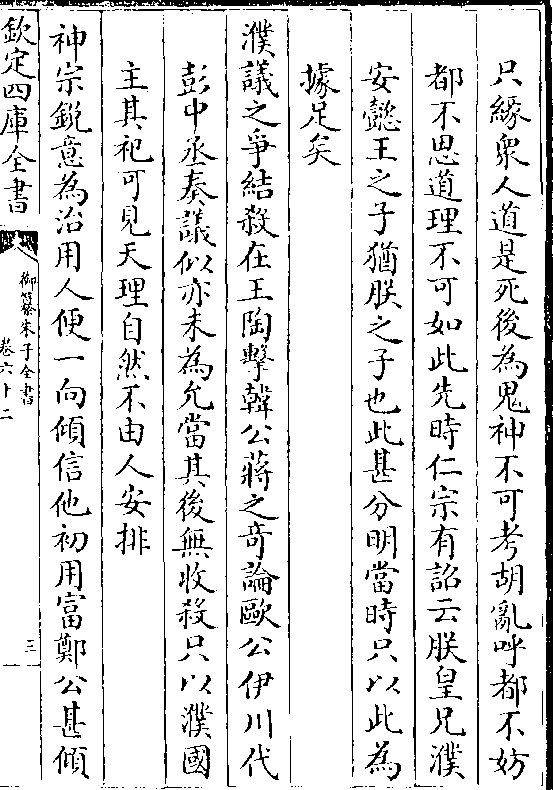 只緣衆人道是死後為鬼神不可考胡亂呼都不妨
都不思道理不可如此先時仁宗有詔云朕皇兄濮
安懿王之子猶朕之子也此甚分明當時只以此為
據足矣
濮議之爭結殺在王陶擊韓公蔣之奇論歐公伊川代
彭中丞奏議似亦未為允當其後無收殺只以濮國
主其祀可見天理自然不由人安排
神宗銳意為治用人便一向傾信他初用富鄭公甚傾
欽定四庫全書
御纂朱子全書
卷六十二
三